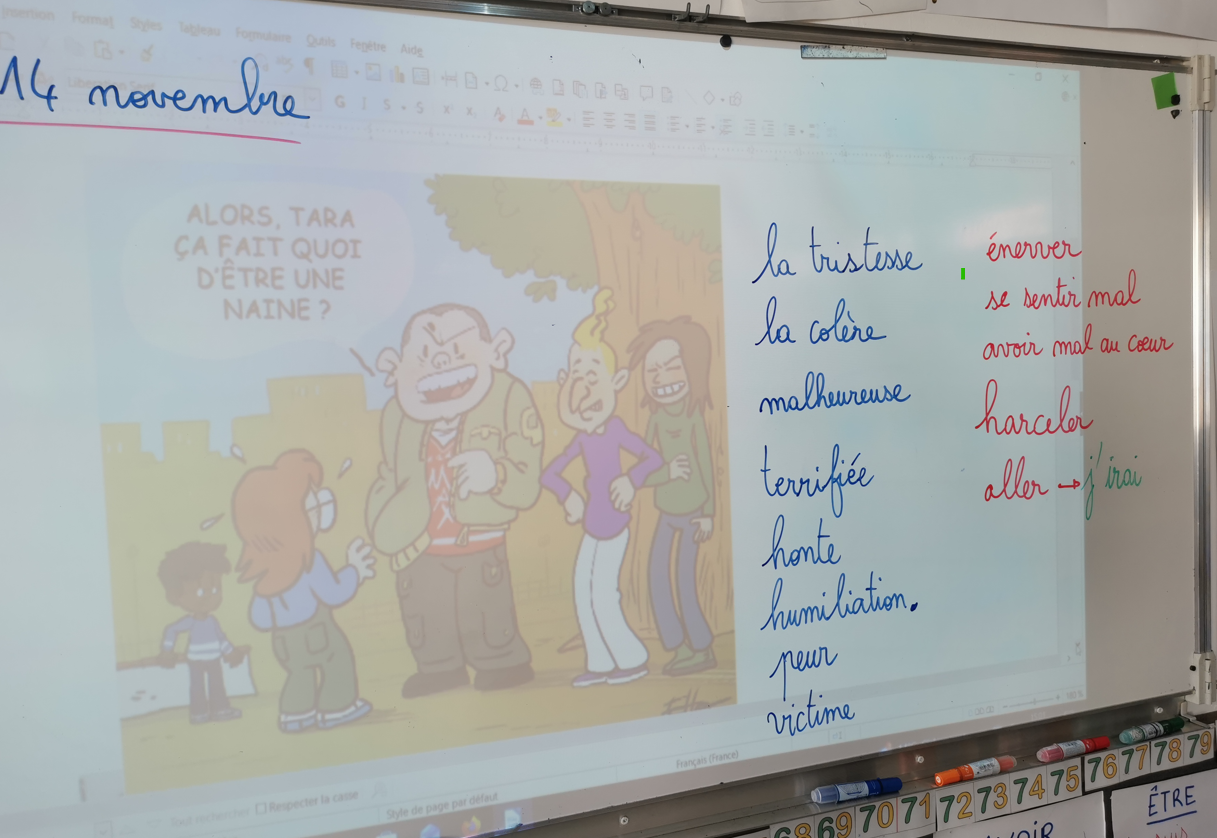 Insertion Format Styles Tableau Formulaire Outils Fenêtre Aide
14 novembre
ALORS, TARA
ÇA FAIT QUOI
D'ÊTRE UNE
NAINE ?
la tristesse
la colère
malheureuse
terrifiée
honte
humiliation.
peur
victime
énerver
se sentir mal
avoir mal au cœur
harceler
aller → j'irai
Français (France)
Tout rechercher Respecter la casse
Style de page par défaut
68 69 70 71 72 73 74 75 76 77 78 79
ÊTRE